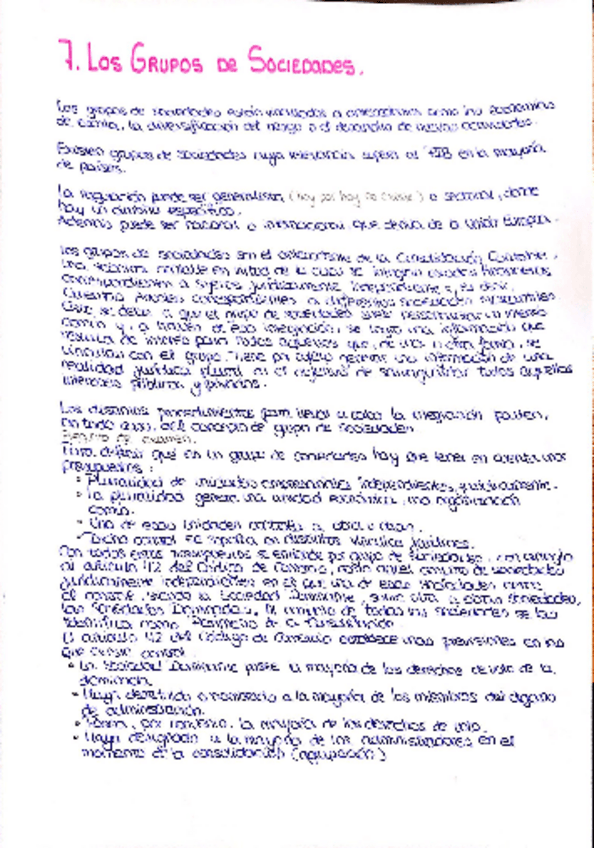 7. Los Grupos de Sociedades.
Los grupos de sociedades están vinculados a como las economías
de escala, la diversificación del riesgo o el de nuevos
Existen grupos de sociedades cuya relevancia supera al PIB en la mayoría
de países.
La regulación puede ser generalista (hoy por hoy no existe) o sectorial, donde
hay un ámbito específico.
Además puede ser nacional o internacional que deriva de la Unión Europea.
Los grupos de sociedades son el de la Consolidación Contable,
una contable en virtud de la cual se integran estados financieros
correspondientes a sujetos jurídicamente independientes, es decir,
Cuentas Anuales correspondientes a diferentes sociedades mercantiles.
Esto se debe a que el grupo de sociedades suele un interés
común y, a través de esa integración, se logra una información que
resulta de interés para todos aquellos que, de una u otra forma, se
vinculan con el grupo. Tiene por objeto una información de una
realidad jurídica plural en el objetivo de salvaguardar todos aquellos
intereses públicos y privados.
Los distintos procedimientos para llevar a cabo la integración
en todo caso, del concepto de grupo de sociedades
de examen.
Para definir qué es un grupo de sociedades hay que tener en cuenta unos
presupuestos:
• Pluralidad de independientes jurídicamente.
• La pluralidad genera una unidad económica, una organización
común.
• Una de esas unidades controla a otra u otras.
• Dicho control se en distintos vínculos jurídicos.
Con todos estos presupuestos se entiende por grupo de sociedades, con arreglo
al artículo 42 del Código de Comercio, todo aquel conjunto de sociedades
jurídicamente independientes en el que una de esas sociedades ejerce
el control, siendo la Sociedad Dominante, sobre otra u otras sociedades,
las Sociedades Dominadas. El conjunto de todas las sociedades se las
identifica como Perímetro de la Consolidación.
El artículo 42 del Código de Comercio establece unas previsiones en las
que existe control:
• La Sociedad Dominante posee la mayoría de los derechos de voto de la
dominada.
• Haya a la mayoría de los miembros del órgano
de administración.
• Posea, por convenio, la mayoría de los derechos de voto.
• Haya designado a la mayoría de los administradores en el
momento de la consolidación (agrupación)